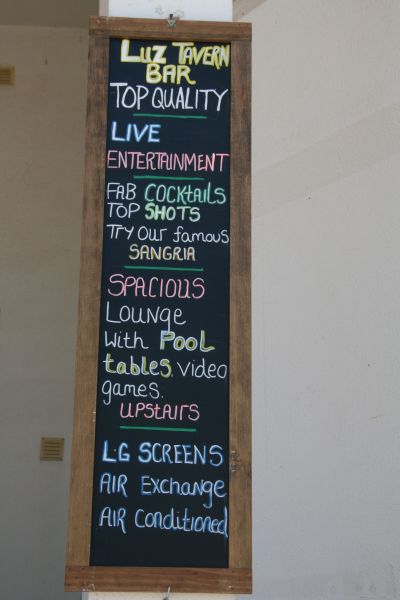 Luz Tavern
BAR
TOP QUALITY
LIVE
ENTERTAINMENT
FAB COCKTAILS
TOP SHOTS
Try our famous
SANGRIA
SPACIOUS
Lounge
with Pool
tables, video
games.
UPSTAIRS
L.G SCREENS
AIR Exchange
AIR Conditioned